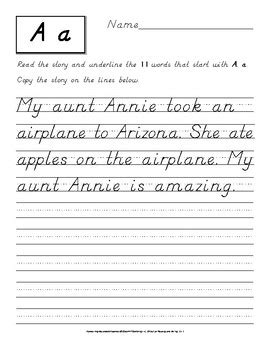 A a
Name
Read the story and underline the 11 words that start with A a.
Copy the story on the lines below.
My aunt Annie took an
airplane to Arizona. She ate
apples on the airplane. My
aunt Annie is amazing.